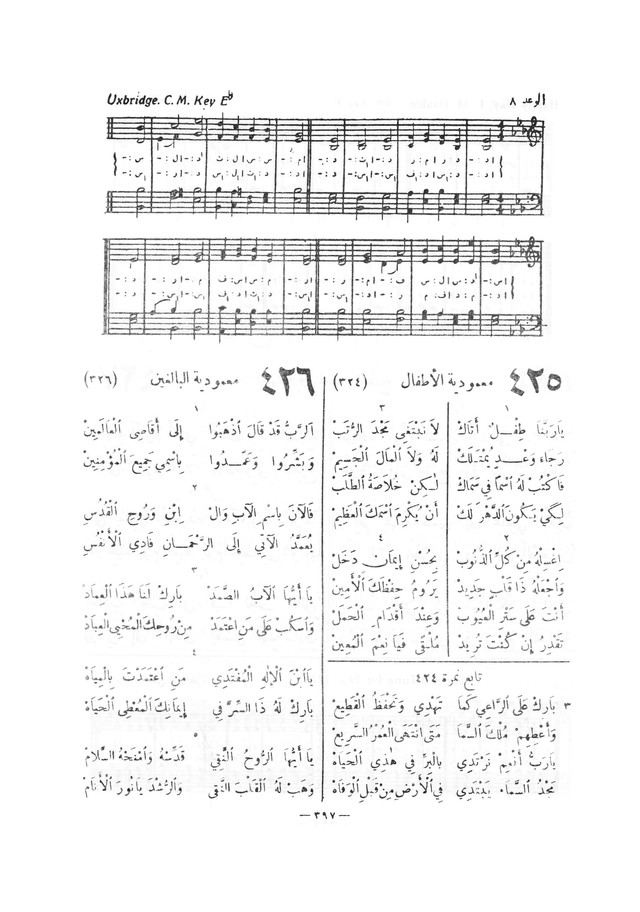 Uxbridge. C. M. Key E♭
الوعد ٨
٤٢٥ معمودية الأطفال (٣٢٤)
١
يَارَبَّنَا طِفْلٌ أَتَاكْ
رَجَاءَ وَعْدٍ يُمْتَلَكْ
فَاكْتُبْ لَهُ ٱسْمًا فِي سَمَاكْ
لِكَيْ يَكُونَ ٱلدَّهْرَ لَكْ
٢
اِغْسِلْهُ مِنْ كُلِّ ٱلذُّنُوبْ
وَٱجْعَلْهُ ذَا قَلْبٍ جَدِيدْ
أَنْتَ عَلَى سَتْرِ ٱلْعُيُوبْ
تَقْدِرُ إِنْ كُنْتَ تُرِيدْ
٣
لَا نَبْتَغِي مَجْدَ ٱلرُّتَبْ
لَهُ وَلَا ٱلْمَالَ ٱلْجَسِيمْ
لٰكِنْ خُلَاصَةُ ٱلطَّلَبْ
أَنْ يُكْرِمَ ٱسْمَكَ ٱلْعَظِيمْ
٤
بِحُسْنِ إِيمَانٍ دَخَلْ
يَرُومُ حِفْظَكَ ٱلْأَمِينْ
وَعِنْدَ أَقْدَامِ ٱلْحَمَلْ
مُلْقًى فَيَا نِعْمَ ٱلْمُعِينْ
تابع نمرة ٤٢٤
٣ بَارِكْ عَلَى ٱلرَّاعِي كَمَا تَهْدِي وَتَحْفَظُ ٱلْقَطِيعْ
وَأَعْطِهِمْ مُلْكَ ٱلسَّمَا مَتَى ٱنْتَهَى ٱلْعُمْرُ ٱلسَّرِيعْ
يَارَبُّ أَنْعِمْ نَرْتَدِي بِٱلْبِرِّ فِي هٰذِي ٱلْحَيَاهْ
مَجْدُ ٱلسَّمَاءِ يَبْتَدِي فِي ٱلْأَرْضِ مِنْ قَبْلِ ٱلْوَفَاهْ
٤٢٦ معمودية البالغين (٣٢٦)
١
اَلرَّبُّ قَدْ قَالَ ٱذْهَبُوا إِلَى أَقَاصِي ٱلْعَالَمِينْ
وَبَشِّرُوا وَعَمِّدُوا بِٱسْمِي جَمِيعَ ٱلْمُؤْمِنِينْ
٢
فَالْآنَ بِاسْمِ ٱلْآبِ وَالْ اِبْنِ وَرُوحِ ٱلْقُدُسِ
يُعَمَّدُ ٱلْآتِي إِلَى ٱلرَّحْمَانِ فَادِي ٱلْأَنْفُسِ
٣
يَا أَيُّهَا ٱلْآبُ ٱلصَّمَدْ بَارِكْ لَنَا هَذَا ٱلْعِمَادْ
وَٱسْكُبْ عَلَى مَنِ ٱعْتَمَدْ مِنْ رُوحِكَ ٱلْمُحْيِي ٱلْعِبَادْ
٤
يَا ٱبْنَ ٱلْإِلٰهِ ٱلْمُفْتَدِي مَنِ ٱعْتَمَدْتَ بِٱلْمِيَاهْ
بَارِكْ لَهُ ذَا ٱلسِّرَّ فِي إِيمَانِكَ ٱلْمُعْطِي ٱلْحَيَاهْ
٥
يَا أَيُّهَا ٱلرُّوحُ ٱلنَّقِي قَدِّسْهُ وَٱمْنَحْهُ ٱلسَّلَامْ
وَهَبْ لَهُ ٱلْقَلْبَ ٱلتَّقِي وَٱلرُّشْدَ يَا نُورَ ٱلْأَنَامْ
— ٣٩٧ —